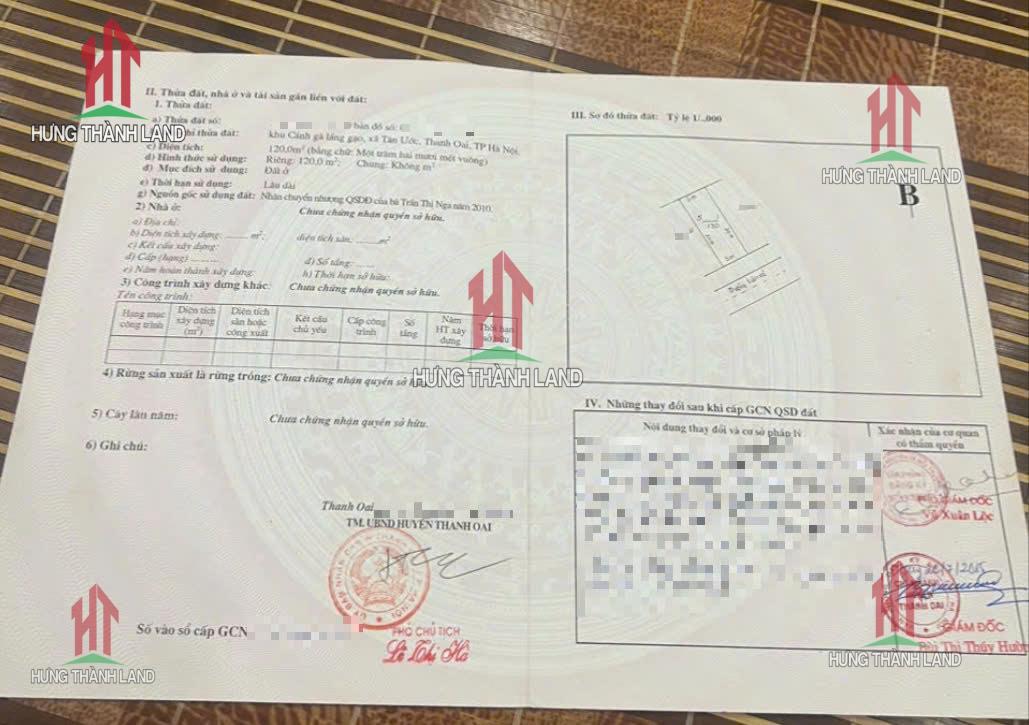 HƯNG THÀNH LAND
II. Thửa đất, nhà ở và tài sản gắn liền với đất:
1. Thửa đất:
a) Thửa đất số: bản đồ số:
chỉ thửa đất: khu Cánh gà lắng gạo, xã Tân Ước, Thanh Oai, TP Hà Nội.
c) Diện tích: 120,0m² (bằng chữ: Một trăm hai mươi mét vuông)
d) Hình thức sử dụng: Riêng: 120,0 m²; Chung: Không m²
đ) Mục đích sử dụng: Đất ở
e) Thời hạn sử dụng: Lâu dài
g) Nguồn gốc sử dụng đất: Nhận chuyển nhượng QSDĐ của bà Trần Thị Nga năm 2010.
2) Nhà ở: Chưa chứng nhận quyền sở hữu.
a) Địa chỉ:
b) Diện tích xây dựng: ......... m²; diện tích sàn: .........m²
c) Kết cấu xây dựng:
d) Cấp (hạng) ......... đ) Số tầng: ......
e) Năm hoàn thành xây dựng: h) Thời hạn sở hữu:
3) Công trình xây dựng khác: Chưa chứng nhận quyền sở hữu.
Tên công trình:
Hạng mục công trình
Diện tích xây dựng (m²)
Diện tích sàn hoặc công xuất
Kết cấu chủ yếu
Cấp công trình
Số tầng
Năm HT xây dựng
Thời hạn sở hữu
HƯNG THÀNH LAND
4) Rừng sản xuất là rừng trồng: Chưa chứng nhận quyền sở
5) Cây lâu năm: Chưa chứng nhận quyền sở hữu.
6) Ghi chú:
Thanh Oai
TM. UBND HUYỆN THANH OAI
PHÓ CHỦ TỊCH
Lê Thị Hà
Số vào sổ cấp GCN
HƯNG THÀNH LAND
III. Sơ đồ thửa đất: Tỷ lệ
HƯNG THÀNH LAND
B
IV. Những thay đổi sau khi cấp GCN QSD đất
Nội dung thay đổi và cơ sở pháp lý
Xác nhận của cơ quan có thẩm quyền
GIÁM ĐỐC
Vũ Xuân Lộc
THANH OAI
GIÁM ĐỐC
Bùi Thị Thúy Hườn
HƯNG THÀNH LAND